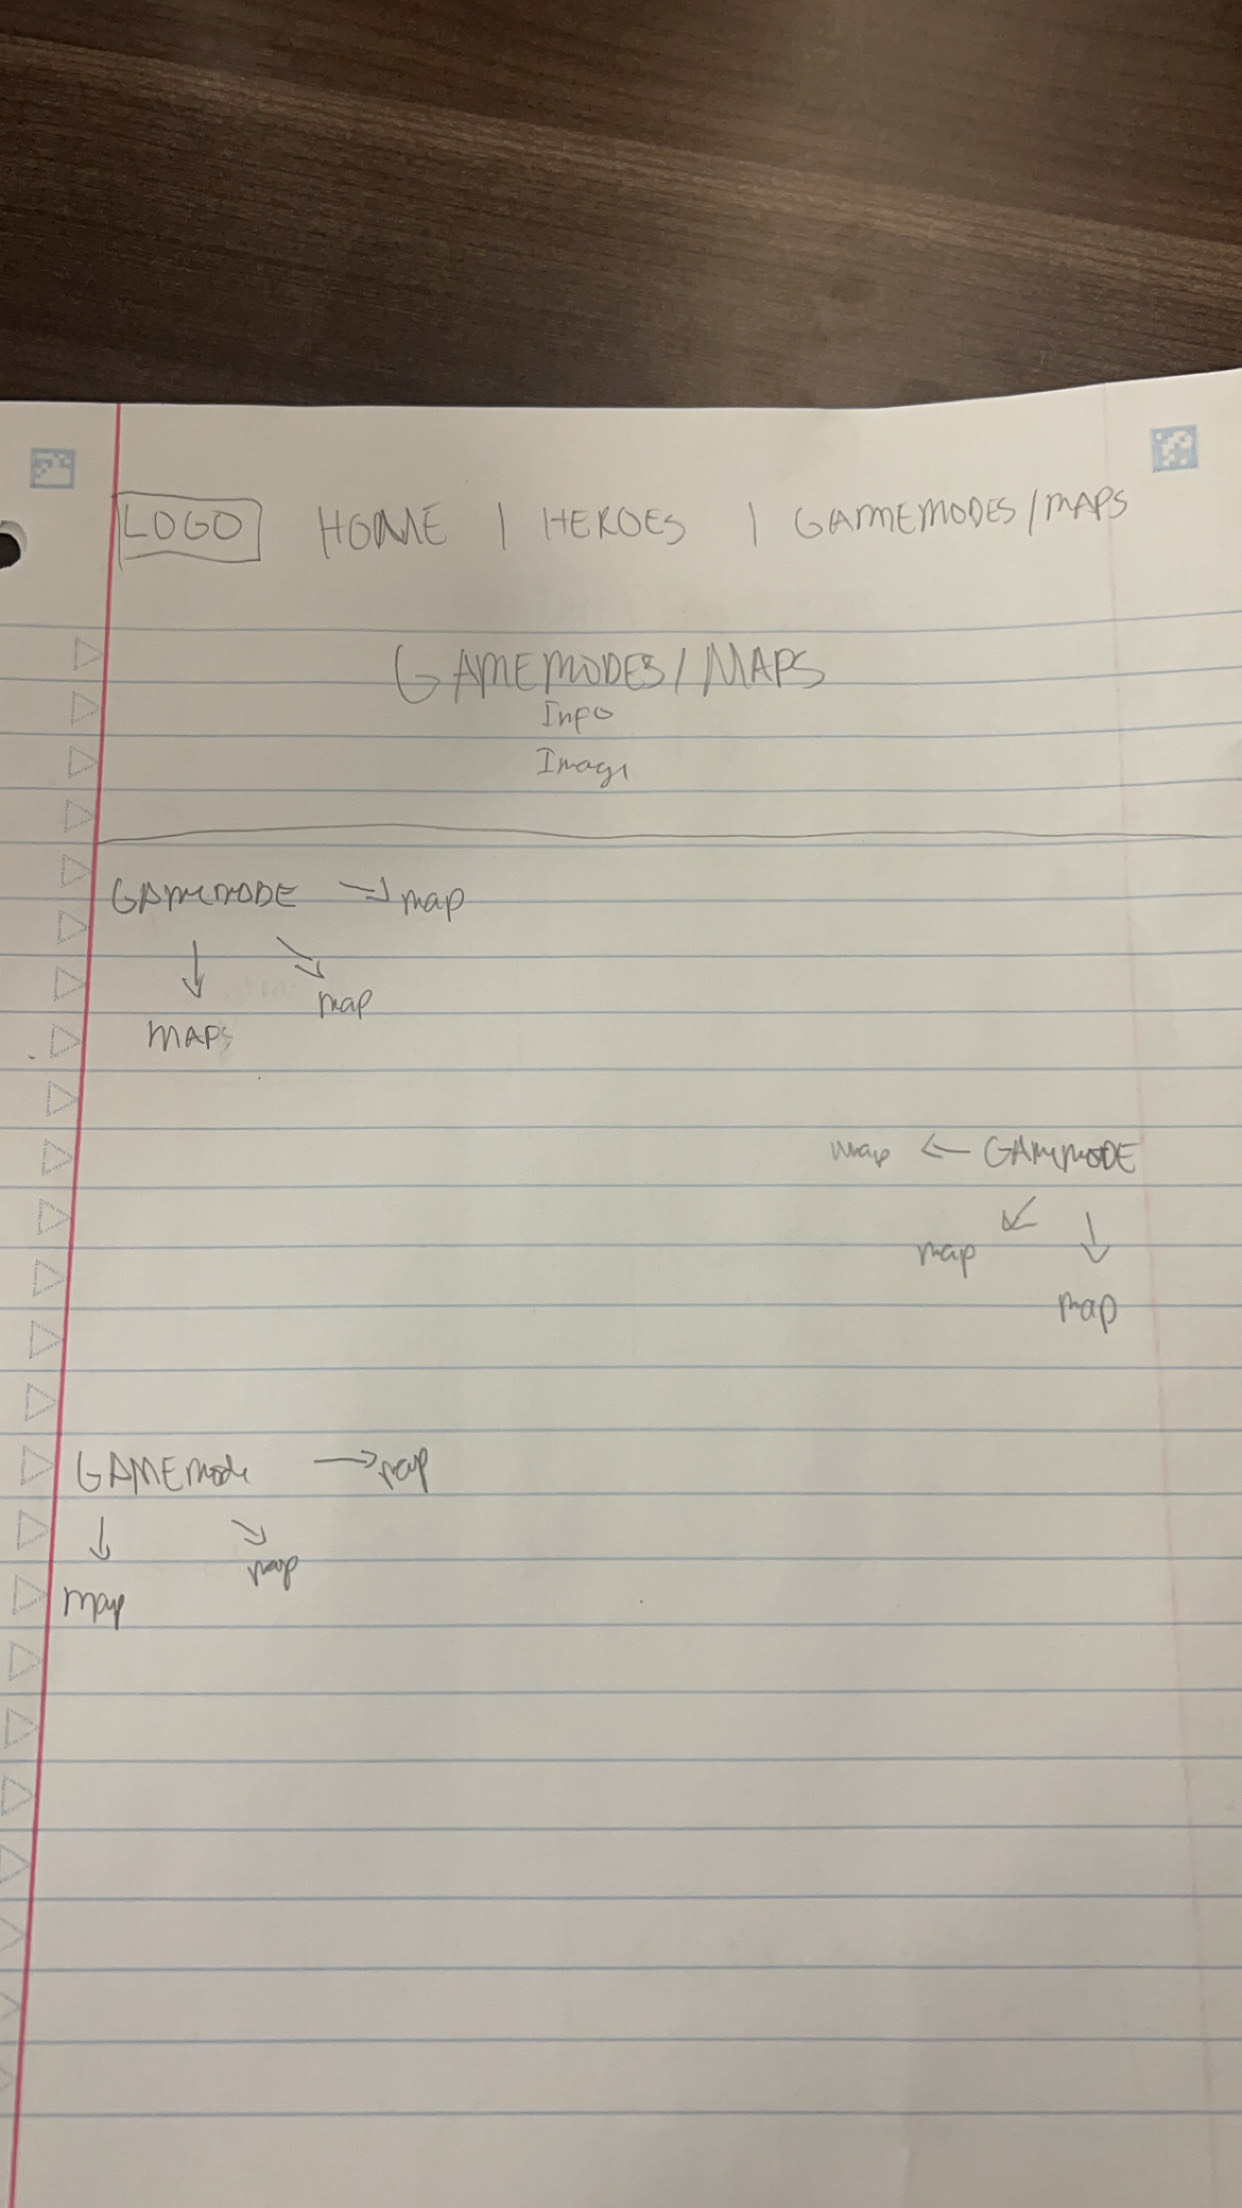 LOGO HOME | HEROES | GAMEMODES/MAPS
GAMEMODES/MAPS
Info
Image
GAMEMODE → map
map
MAPS
map ← GAMEMODE
map
map
GAMEmode → map
map
map